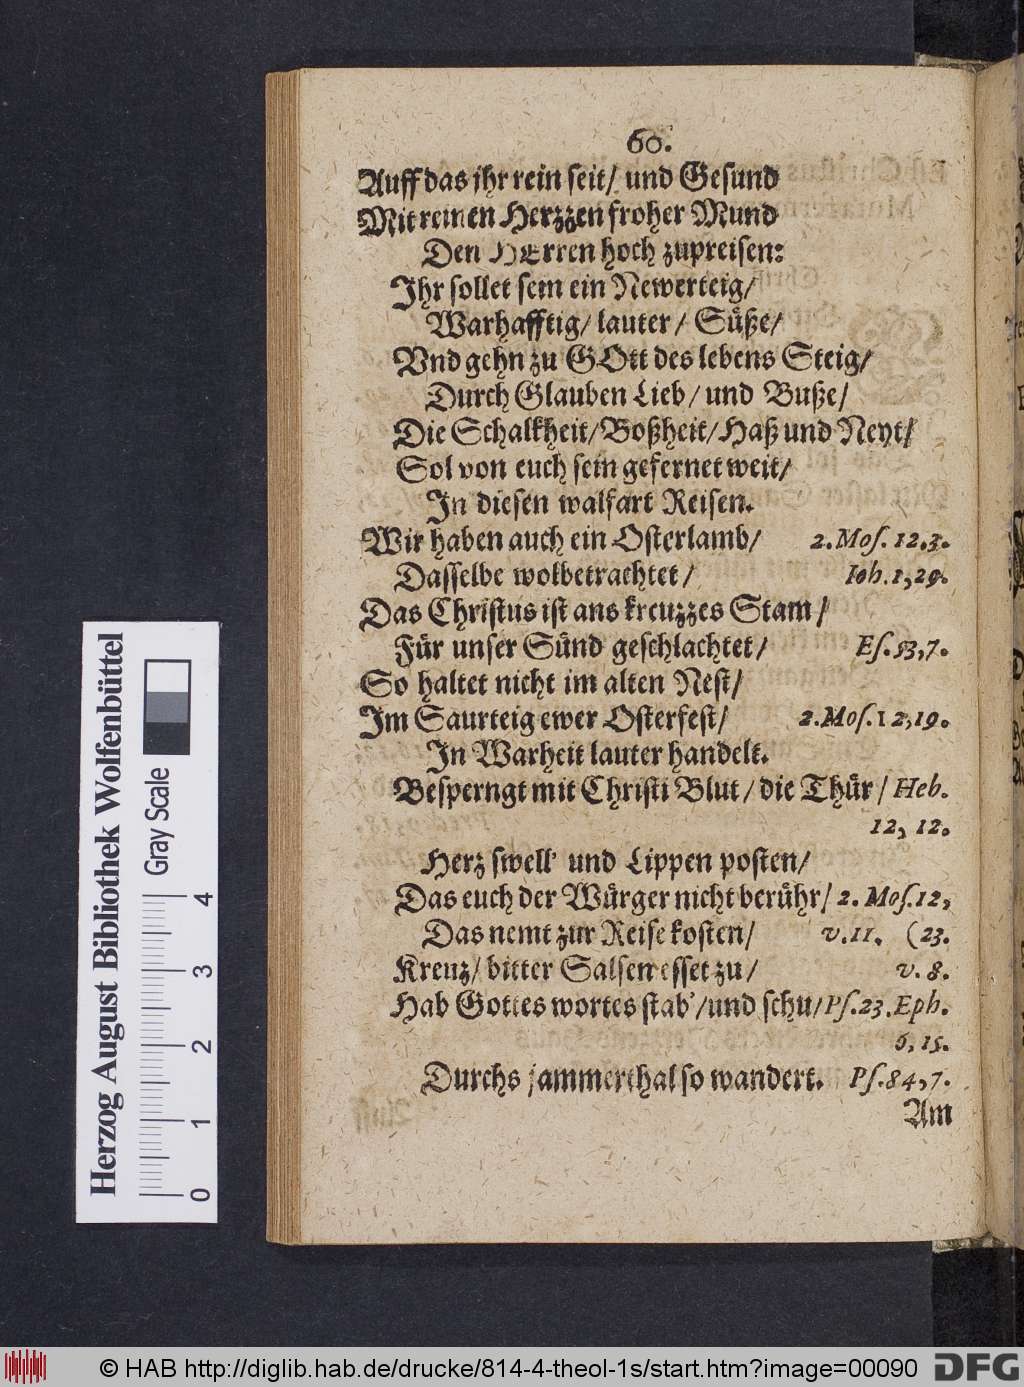 60.
Auff das jhr rein seit/ und Gesund
Mit reinen Herzzen froher Mund
Den HErren hoch zupreisen:
Ihr sollet sein ein Newerteig/
Warhafftig/ lauter/ Süße/
Vnd gehn zu GOtt des lebens Steig/
Durch Glauben Lieb/ und Buße/
Die Schalkheit/Boßheit/Haß und Neyt/
Sol von euch sein gefernet weit/
In diesen walfart Reisen.
Wir haben auch ein Osterlamb/ 2.Mos. 12.3.
Dasselbe wolbetrachtet/ Ioh.1,29.
Das Christus ist ans kreuzzes Stam/
Für unser Sünd geschlachtet/ Es. 53,7.
So haltet nicht im alten Nest/
Im Saurteig ewer Osterfest/ 2.Mos.12,19.
In Warheit lauter handelt.
Besperngt mit Christi Blut/die Thür/ Heb.
12, 12.
Herz swell' und Lippen posten/
Das euch der Würger nicht berühr/ 2. Mos.12,
Das nemt zur Reise kosten/ v.11. (23.
Kreuz/ bitter Salsen esset zu/ v. 8.
Hab Gottes wortes stab'/und schu/Ps.23.Eph.
6,15.
Durchs jammerthal so wandert. Ps.84,7.
Am
Herzog August Bibliothek Wolfenbüttel
Gray Scale
0 1 2 3 4
© HAB http://diglib.hab.de/drucke/814-4-theol-1s/start.htm?image=00090
DFG